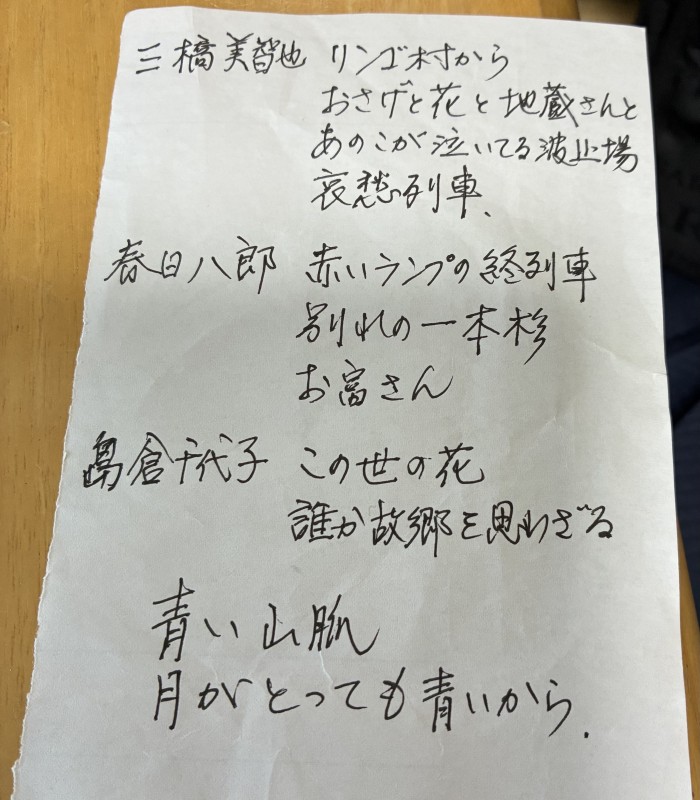 三橋美智也 リンゴ村から
おさげと花と地蔵さんと
あのこが泣いてる波止場
哀愁列車、
春日八郎 赤いランプの終列車
別れの一本杉
お富さん
島倉千代子 この世の花
誰か故郷を思わざる
青い山脈
月がとっても青いから.